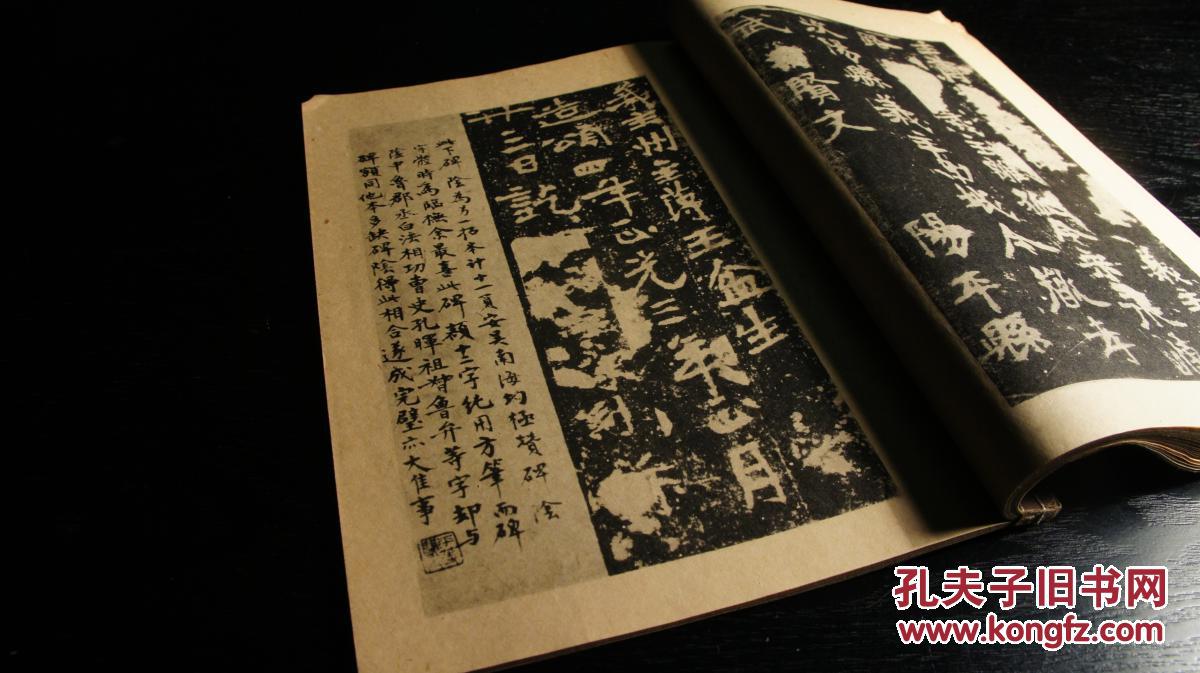 汶陽縣義主南城令嚴孝
武
賢文
陽平縣
義主州主簿王盆生
造頌四年正光三年正月
廿三日訖
此下碑陰為另一拓本計十一頁安吳南海均極贊碑陰
字體時為臨橅余最喜此碑額十二字純用方筆而碑
陰中魯郡丞白法相功曹史孔暉祖對魯弁等字却與
碑額同他本多缺碑陰得此相合遂成完璧亦大佳事
孔夫子旧书网
www.kongfz.com